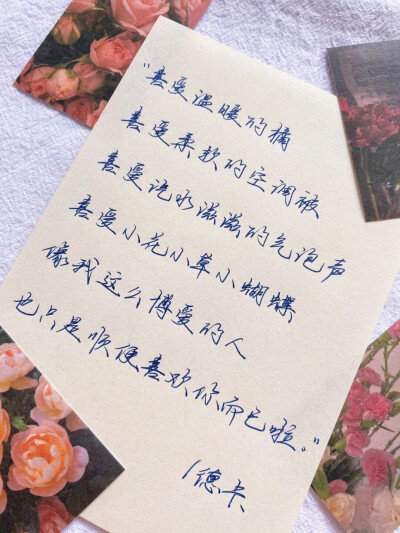 “喜爱温暖的橘
喜爱柔软的空调被
喜爱汽水滋滋的气泡声
喜爱小花小草小蝴蝶
像我这么博爱的人
也只是顺便喜欢你而已啦。”
/德卡